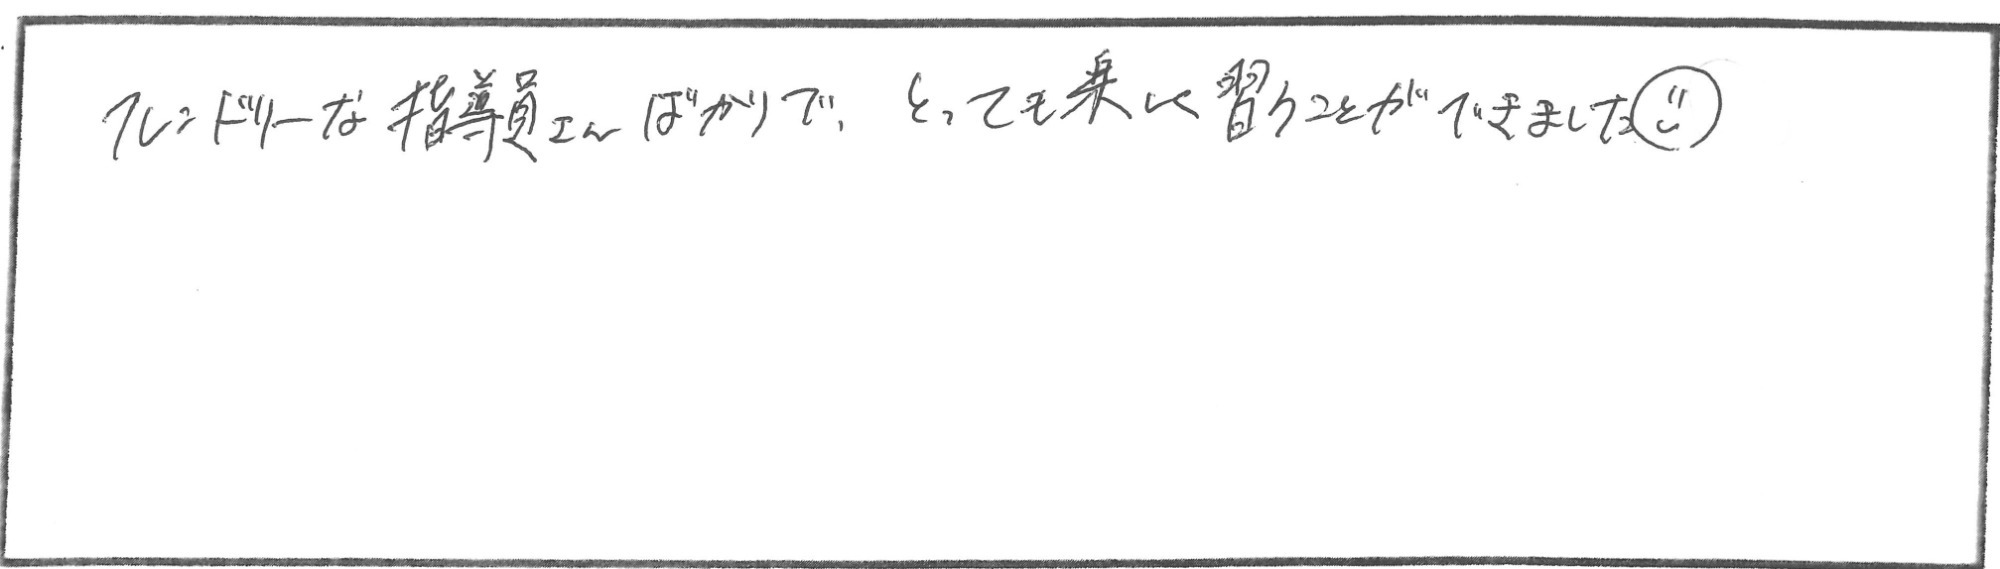 フレンドリーな指導員さんばかりで、とっても楽しく習うことができました